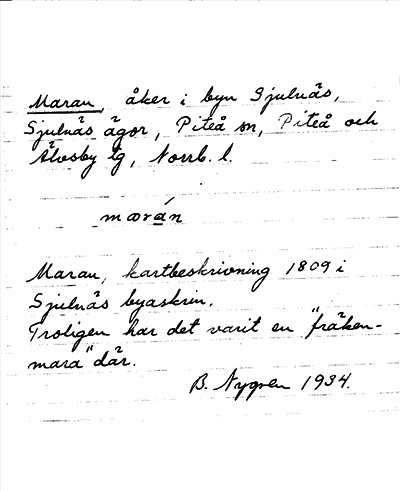 Maran, åker i byn Sjulnäs,
Sjulnäs ägor, Piteå sn, Piteå och
Älvsby tg, Norrb. l.
marán
Maran, kartbeskrivning 1809 i
Sjulnäs byaskrin.
Troligen har det varit en "fräken-
mara" där.
B. Nygren 1934.